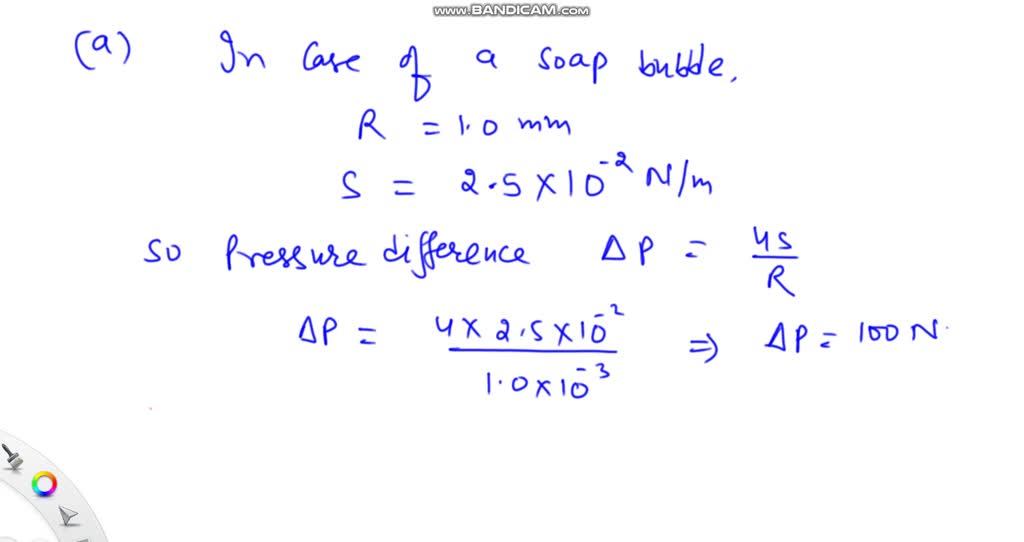 www.BANDICAM.com
(a) In Case of a soap bubble,
R = 1.0 mm
S = 2.5 × 10⁻² N/m
so Pressure difference ΔP = 4S/R
ΔP = 4 × 2.5 × 10⁻² / 1.0 × 10⁻³ ⇒ ΔP = 100 N